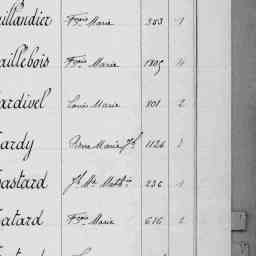 illandier Fçois Marie 383 1
aillebois Fçois Marie 1805 4
ardivel Louis Marie 801 2
ardy Pierre Marie Jh 1126 3
astard Jh Me Math 236 1
atard Fçois Marie 616 2